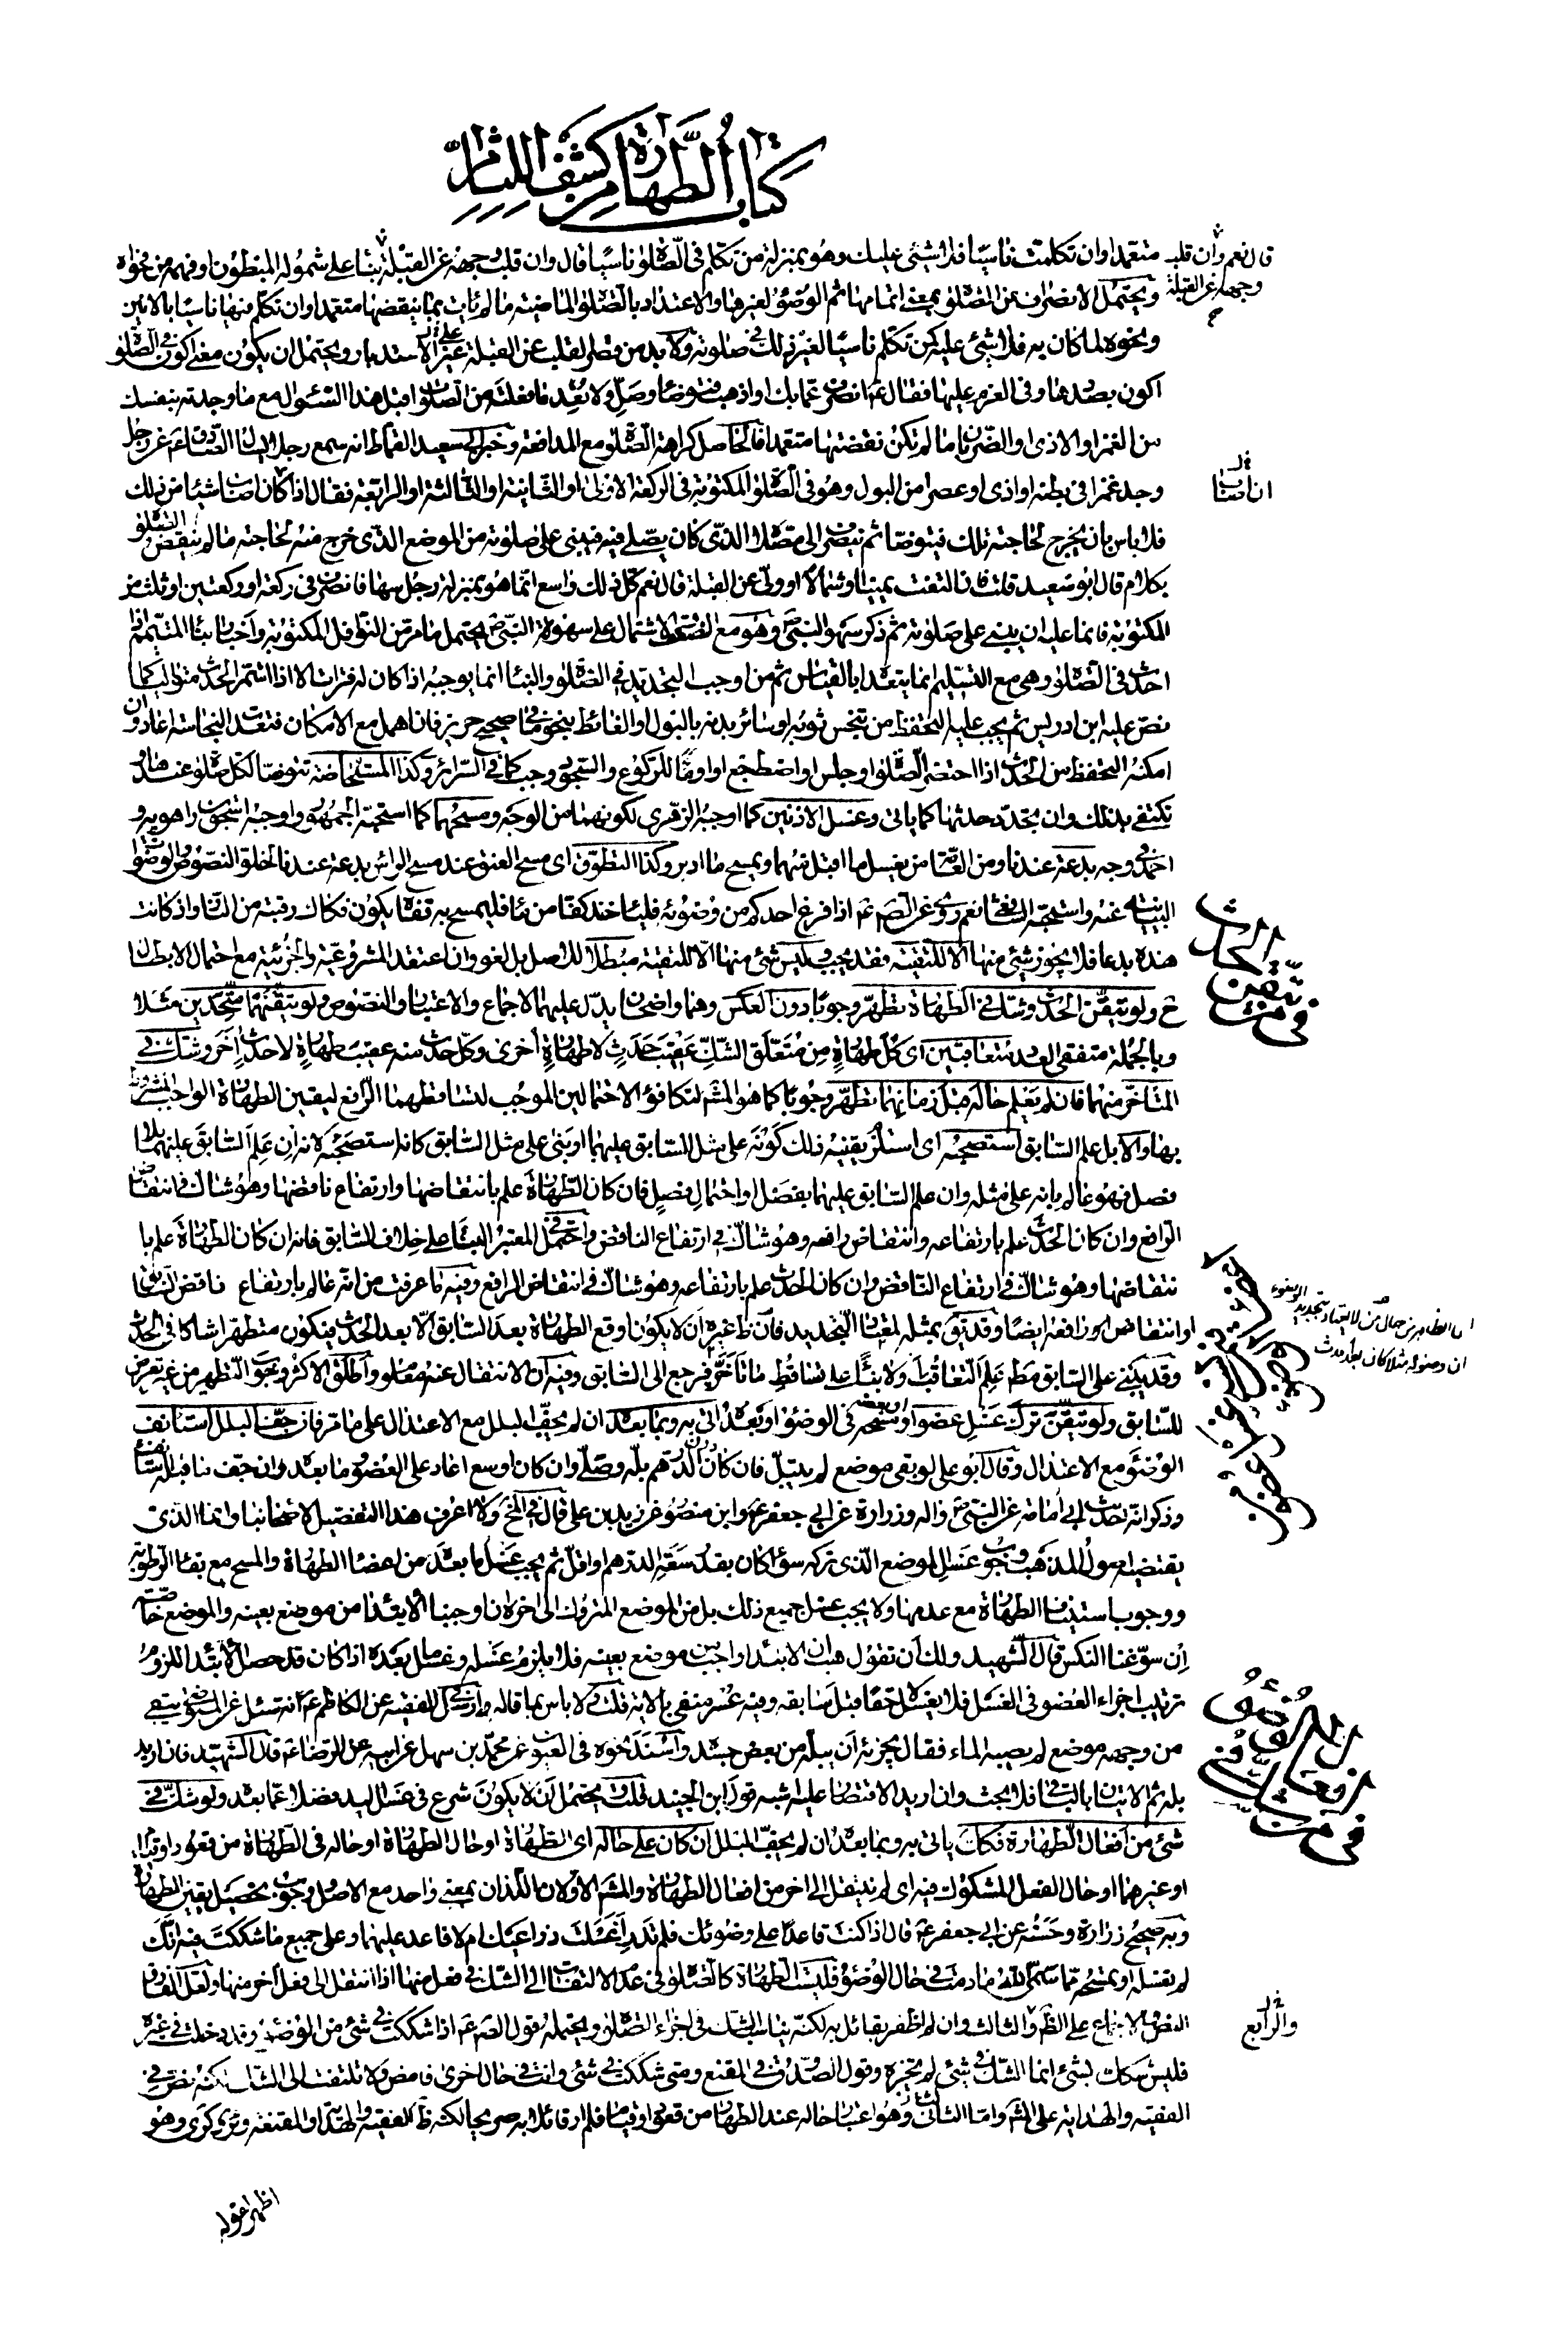 كتاب الطهارة من كشف اللثام
متعمدا وان تكلمت ناسيا فلا شئ عليك وهو بمنزلة من تكلم فى الصلوة ناسيا قال وان قلب وجهه عن القبلة بناء على شموله المبطون او فهمه من نحوه
قال نعم وان قلب وجهه عن القبلة
ويحتمل الانصراف عن الصلوة بمعنى اتمامها ثم الوضوء لغيرها والاعتداد بالصلوة الماضية ما لم يأت بما ينقضها متعمدا وان تكلم فيها ناسيا بالانين
ونحوه لما كان به فلا شئ عليه كمن تكلم ناسيا لغير ذلك فى صلوته ولابد من قصر القلب عن القبلة على غير الاستدبار ويحتمل ان يكون معنى اكون فى الصلوة
اكون بصددها وفى العزم عليها فقال ع انصرف عما بك او اذهب فتوضأ وصل ولا تعد ما فعلته من الصلوة قبل هذا السؤال مع ما وجدته بنفسك
من الغمز او الاذى او الضربان ما لم تكن نقضتها متعمدا فالحاصل كراهة الصلوة مع المدافعة وخبر ابى سعيد القماط انه سمع رجلا يسال الصادق ع عن رجل
وجد غمزا فى بطنه او اذى او عصرا من البول وهو فى الصلوة المكتوبة فى الركعة الاولى او الثانية او الثالثة او الرابعة فقال اذا كان اصاب شيئا من ذلك
ان اصاب
فلا باس بان يخرج لحاجته تلك فيتوضأ ثم ينصرف الى مصلاه الذى كان يصلى فيه فيبنى على صلوته من الموضع الذى خرج منه لحاجته ما لم ينقض الصلوة
بكلام قال ابو سعيد قلت فان التفت يمينا وشمالا او ولى عن القبلة قال نعم كل ذلك واسع انما هو بمنزلة رجل سها فانصرف فى ركعة او ركعتين او ثلث من
المكتوبة فانما عليه ان يبنى على صلوته ثم ذكر سهو النبى ص وهو مع الضعف والاشتمال على سهو النبى ص يحتمل ما مر من النوافل المكتوبة واخبار بناء المتيمم اذا
احدث فى الصلوة وهى مع التسليم انما يتعدى بالقياس ثم من اوجب التجديد فى الصلوة والبناء انما يوجبه اذا كان له فترات لا اذا استمر الحدث متواليا كما
نص عليه ابن ادريس ثم يجب عليه التحفظ من تنجس ثوبه او سائر بدنه بالبول او الغائط بنحو ما فى صحيح حريز فان اهمل مع الامكان فتعدت النجاسة اعاد وان
امكنه التحفظ من الحدث اذا اختصر الصلوة او جلس او اضطجع او اومأ للركوع والسجود وجب كما فى السرائر وكذا المستحاضة تتوضأ لكل صلوة عندها و
تكتفى بذلك وان تجدد حدثها كما ياتى وغسل الاذنين كما اوجبه الزهرى لكونهما من الوجه ومسحهما كما استحبه الجمهور واوجبه اسحق بن راهويه و
احمد فى وجه بدعة عندنا ومن العامة من يغسل ما اقبل منهما ويمسح ما ادبر وكذا التطوق اى مسح العنق عند مسح الراس بدعة عندنا لخلو النصوص والوضوءات
البيانية عنه واستحبه الشافعى نعم روى عن الصم ع اذا فرغ احدكم من وضوئه فلياخذ كفا من ماء فليمسح به قفاه يكون فكاك رقبته من النار واذ كانت
هذه بدعا فلا يجوز شئ منها الا للتقية فقد يجب وليس شئ منها الا للتقية مبطلا للاصل بل لغو وان اعتقد المشروعية والجزئية مع احتمال الابطال
ح ولو تيقن الحدث وشك فى الطهارة تطهر وجوبا دون العكس وهما واضحان يدل عليهما الاجماع والاعتبار والنصوص ولو تيقنهما متحدين مثلا
فى من تيقن الحدث
وبالجملة متفقى العدد متعاقبين اى كل طهارة من متعلق الشك عقيب حدث لا طهارة اخرى وكل حدث منه عقيب طهارة لا حدث اخر وشك فى
المتاخر منهما فان لم يعلم حاله قبل زمانهما تطهر وجوبا كما هو المشهور لتكافؤ الاحتمالين الموجب لتساقطهما الرافع ليقين الطهارة الواجب المشروط
بها والا بل علم السابق استصحبه اى استلزم يقينه ذلك كونه على مثل السابق عليهما او بنى على مثل السابق كانه استصحبه لانه ان علم السابق عليهما بلا
فصل فهو عالم بانه على مثله وان علم السابق عليهما بفصل او احتمال فصل فان كان الطهارة علم بانتقاضها وارتفاع ناقضها وهو شاك فى انتقاض
الرافع وان كان الحدث علم بارتفاعه وانتقاض رافعه وهو شاك فى ارتفاع الناقض واحتمل فى المعتبر البناء على خلاف السابق فانه ان كان الطهارة علم با
نتقاضها وهو شاك فى ارتفاع الناقض وان كان الحدث علم بارتفاعه وهو شاك فى انتقاض الرافع وفيه ما عرفت من انه عالم بارتفاع ناقض السابق
او انتقاض رافعه ايضا وقد يق بمثله لمعتاد التجديد فان ظ غيره ان لا يكون اوقع الطهارة بعد السابق الا بعد الحدث فيكون متطهرا شاكا فى الحدث
وقد يبنى على السابق مط علم التعاقب ولا بناء على تساقط ما تاخر فيرجع الى السابق وفيه ان الانتقال عنه معلوم واطلق الاكثر وجوب التطهير من غير تعرض
للسابق ولو تيقن ترك غسل عضو او بعضه او مسحه فى الوضوء او بعده اتى به وبما بعده ان لم يجف البلل مع الاعتدال على ما مر فان جف البلل استانف
الوضوء مع الاعتدال وقال ابو على لو بقى موضع لم يبتل فان كان دون الدرهم بله وصلى وان كان اوسع اعاد على العضو وما بعده وان جف ما قبله استانف
وذكر انه حديث ابى امامة عن النبى ص واله وزرارة عن ابى جعفر ع وابن منصور عن زيد بن على قال فى المخ ولا اعرف هذا التفصيل لاصحابنا وانما الذى
يقتضيه اصول المذهب وجوب غسل الموضع الذى تركه سواء كان بقدر سعة الدرهم او اقل ثم يجب غسل ما بعده من اعضاء الطهارة والمسح مع بقاء الرطوبة
ووجوب استيناف الطهارة مع عدمها ولا يجب غسل جميع ذلك بل من الموضع المتروك الى اخره ان اوجبنا الابتداء من موضع بعينه والموضع خاصة
ان سوغنا النكس قال الشهيد ولك ان تقول هب ان الابتداء واجب من موضع بعينه فلا يلزم غسله وغسل ما بعده اذا كان قد حصل الابتداء للزوم
ترتيب اجزاء العضو فى الغسل فلا يغسل لاحقا قبل سابقه وفيه عسر منفى بالاية قلت لا باس بما قاله وارسل فى الفقيه عن الكاظم ع انه سئل عن الرجل يبقى
من وجهه موضع لم يصبه الماء فقال يجزئه ان يبله من بعض جسده واسند نحوه فى العيون عن محمد بن سهل عن ابيه عن الرضا ع قال الشهيد فان اريد
بله ثم الاتيان بالباقى فلا بحث وان اريد الاقتصار عليه اشبه قول ابن الجنيد قلت ويحتمل ان لا يكون شرع فى غسل اليد فضلا عما بعد ولو شك فى
شئ من افعال الطهارة فكك ياتى به وبما بعده ان لم يجف البلل ان كان على حاله اى الطهارة او حال الطهارة او حاله فى الطهارة من قعود او قيام
فى من شك فى شئ من افعال الوضوء
او غيرهما او حال الفعل المشكوك فيه اى لم ينتقل الى اخر من افعال الطهارة والمشهور الاولان اللذان بمعنى واحد مع الاصل ووجوب تحصيل يقين الطهارة
وبه صحيح زرارة وحسنه عن ابى جعفر ع قال اذا كنت قاعدا على وضوئك فلم تدر اغسلت ذراعيك ام لا فاعد عليهما وعلى جميع ما شككت فيه انك
لم تغسله او تمسحه مما سمى الله ما دمت فى حال الوضوء فليست الطهارة كالصلوة فى عدم الالتفات الى الشك فى فعل منها اذا انتقل الى فعل اخر منها ولعل الفارق
النص والاجماع على الظ والثالث وان لم اظفر بقائل به لكنه يناسب الشك فى اجزاء الصلوة ويحتمله قول الصم ع اذا شككت فى شئ من الوضوء وقد دخلت فى غيره
والرابع
فليس شكك بشئ انما الشك فى شئ لم تجزه وقول الصدوق فى المقنع ومتى شككت فى شئ وانت فى حال اخرى فامض ولا تلتفت الى الشك لكنه نص فى
الفقيه والهداية على المشهور واما الثانى والثالث وهو اعتبار حاله عند الطهارة من قعود او قيام فلم ار قائلا به صريحا لكنه ظ الفقيه والهداية والمقنعة وير كرى وهو
اظهر لقوله